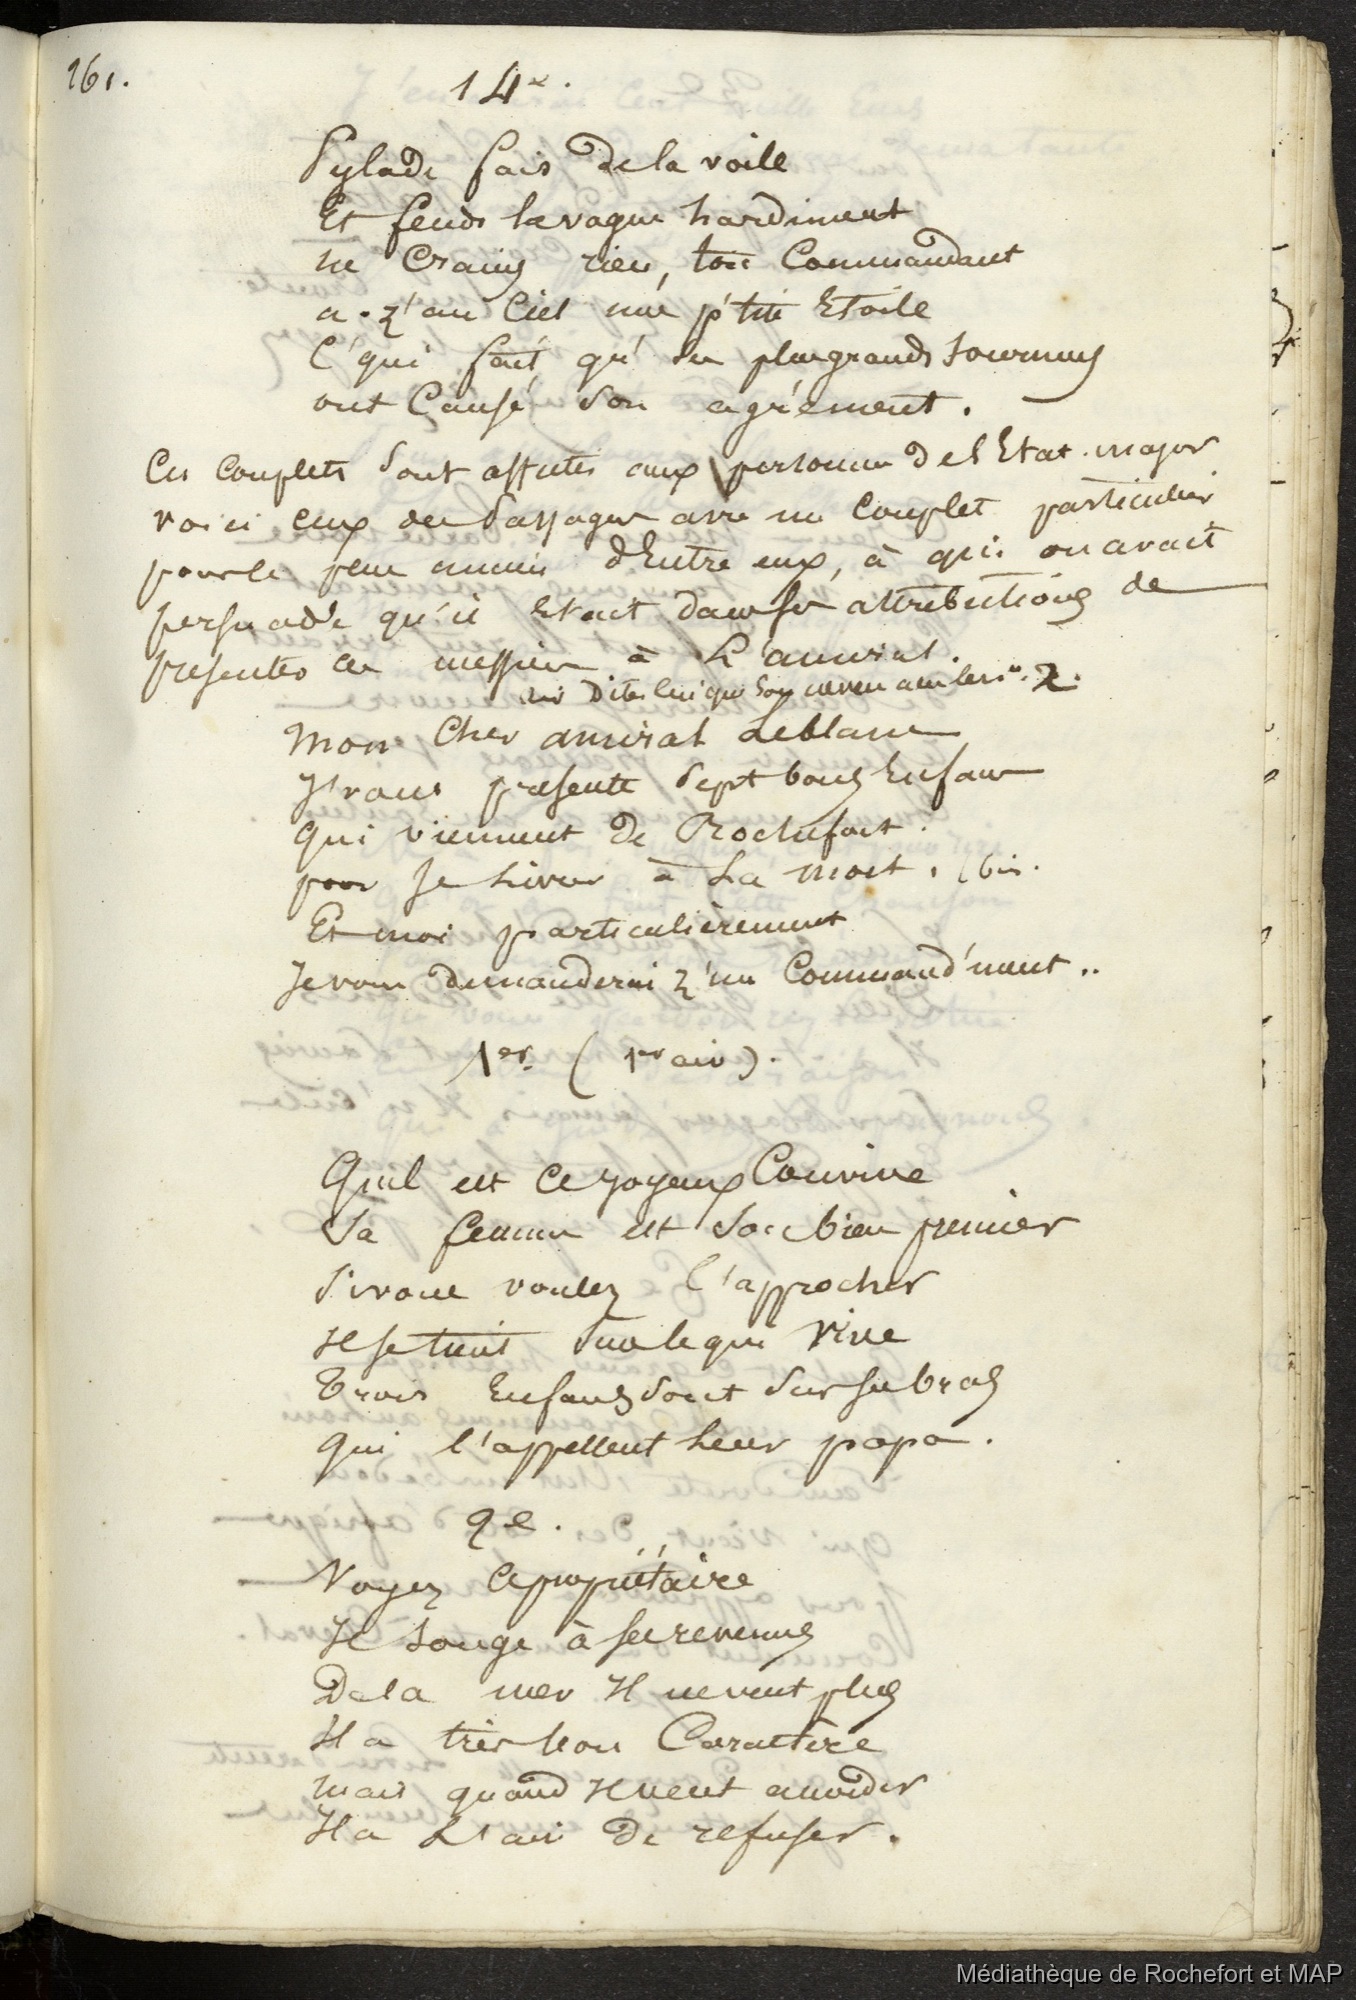 161.
14e.
Pylade fais de la voile
Et fends la vague hardiment
ne Crains rien, ton Commandant
a-z'au Ciel une p'tite Etoile
C'qui fait qu' les plus grands tourmens
ont Causé son agrément.
Ces couplets sont affectés aux personnes de l'Etat-major
voici ceux des Passagers avec un Couplet particulier
pour le plus ancien d'Entre eux, à qui on avait
persuadé qu'il était dans ses attributions de
présenter ces messieurs à L'amiral.
air Dites lui que son neveu
Mon Cher amiral Leblanc
J'vous présente sept bons Enfans
Qui viennent de Rochefort.
pour se livrer à La mort. (bis.
Et moi particulièrement
Je vous demanderai z'un Command'ment..
1er. (1er air).
Quel est ce joyeux Convive
Sa femme est son bien premier
S'ivous voulez l'approcher
Il se tient sur le qui vive
Trois Enfans sont sur ses bras
Qui l'appellent leur papa.
2e.
Voyez ce propriétaire
Il songe à ses revenus
De la mer Il ne veut plus
Il a très bon Caractère
mais quand Il veut accorder
Il a L'air de refuser.
Médiathèque de Rochefort et MAP